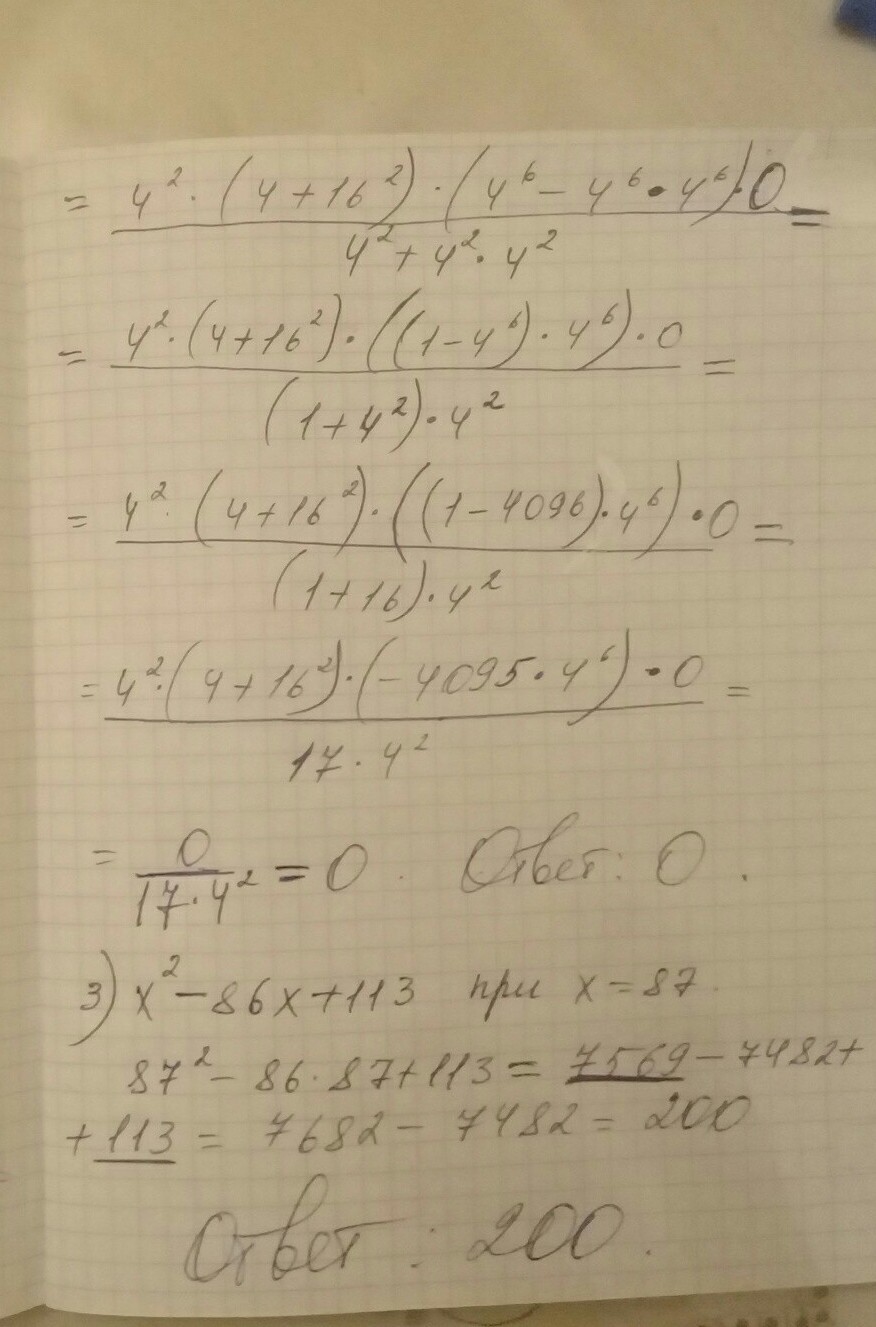 = 4² · (4 + 16²) · (4⁶ − 4⁶ · 4⁶) · 0 =
4² + 4² · 4²
= 4² · (4 + 16²) · ((1 − 4⁶) · 4⁶) · 0 =
(1 + 4²) · 4²
= 4² · (4 + 16²) · ((1 − 4096) · 4⁶) · 0 =
(1 + 16) · 4²
= 4² · (4 + 16²) · (− 4095 · 4⁶) · 0 =
17 · 4²
= 0 = 0 . Ответ : 0 .
17 · 4²
3) x² − 86x + 113 при x = 87 .
87² − 86 · 87 + 113 = 7569 − 7482 +
+ 113 = 7682 − 7482 = 200
Ответ : 200 .